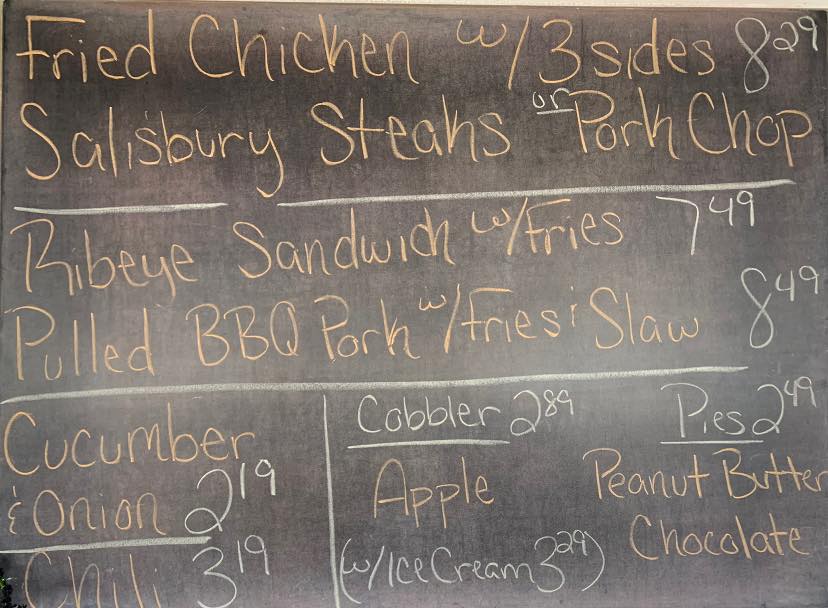 Fried Chicken w/3 sides 8 29
Salisbury Steaks or Pork Chop
Ribeye Sandwich w/Fries 7 49
Pulled BBQ Pork w/Fries & Slaw 8 49
Cucumber
& Onion 2 19
Chili 3 19
Cobbler 2 89
Apple
(w/Ice Cream 3 29)
Pies 2 49
Peanut Butter
Chocolate